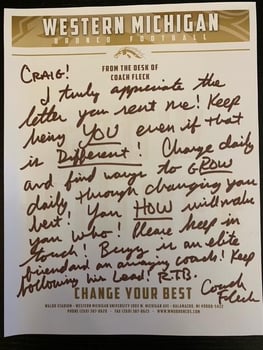 WESTERN MICHIGAN
BRONCO FOOTBALL
FROM THE DESK OF
COACH FLECK
CRAIG!
I truly appreciate the
letter you sent me! Keep
being YOU even if that
is Different! Change daily
and find ways to GROW
daily through changing your
best! Your HOW will make
you Who! Please keep in
touch! Being is an elite
friend and an amazing coach! Keep
following his Lead! R.T.B.
Coach
Fleck
CHANGE YOUR BEST
WALDO STADIUM - WESTERN MICHIGAN UNIVERSITY 1903 W. MICHIGAN AVE - KALAMAZOO, MI 49008-5422
WWW.WMUBRONCOS.COM